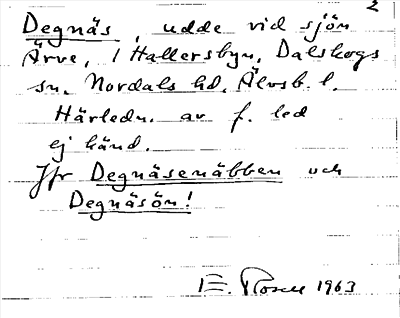 2
Degnäs, udde vid sjön
Ärve, i Hallersbyn, Dalskogs
sn, Nordals hd, Älvsb. l.
Härledn. av f. led
ej känd.
Jfr Degnäsenäbben och
Degnäsön!
E. Rosell 1963